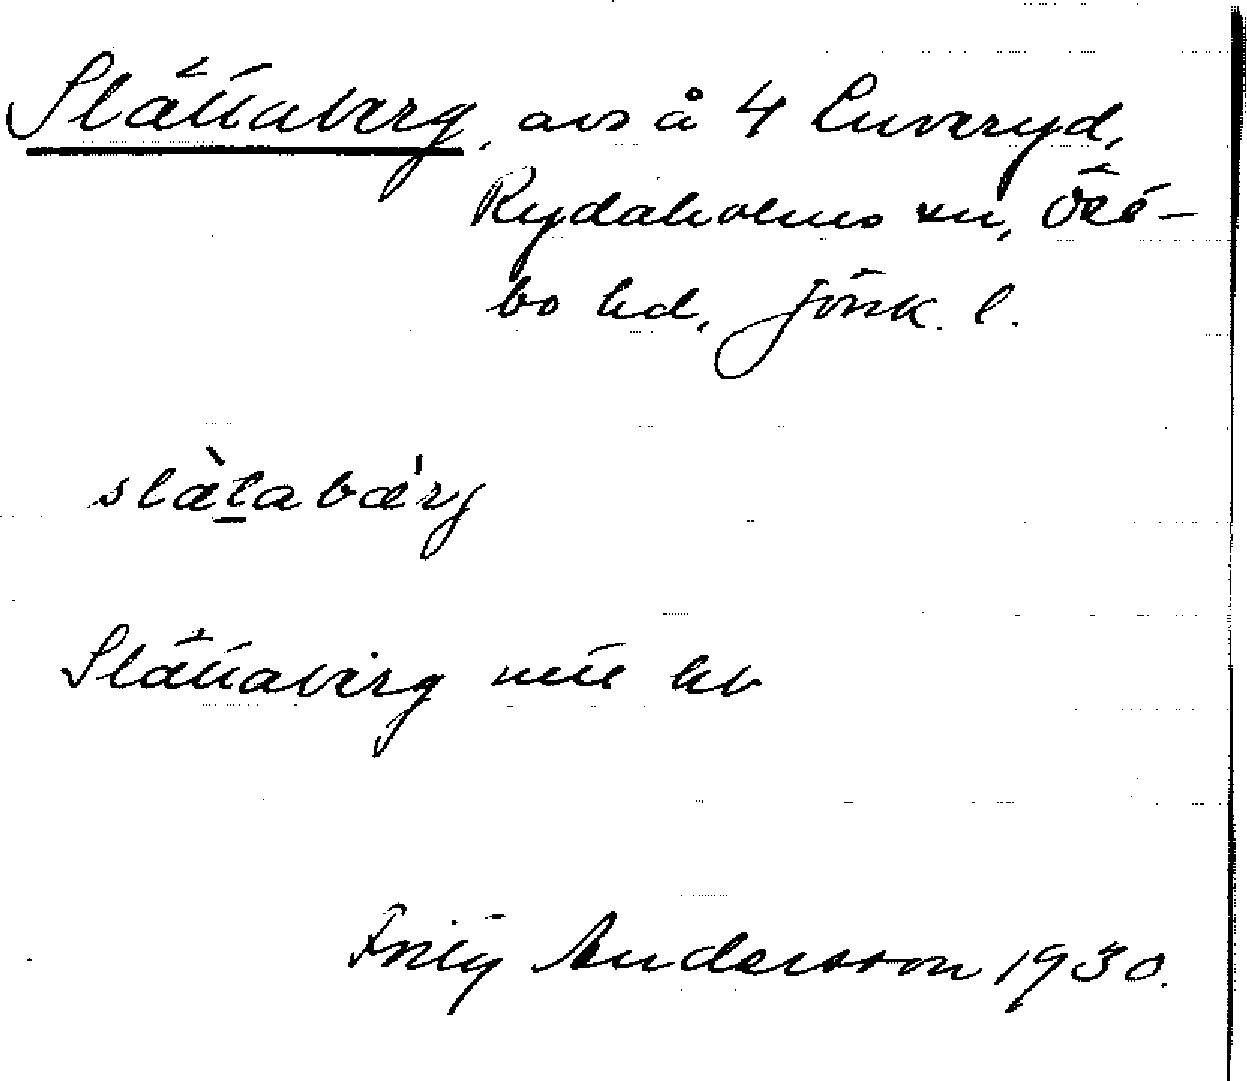 Slättaberg, avs å 4 Luveryd,
Rydaholms sn, Öst-
bo hd, Jönk. l.
slàt̲abǽrj
Slättabärg mtl hb
Frity Andersson 1930.